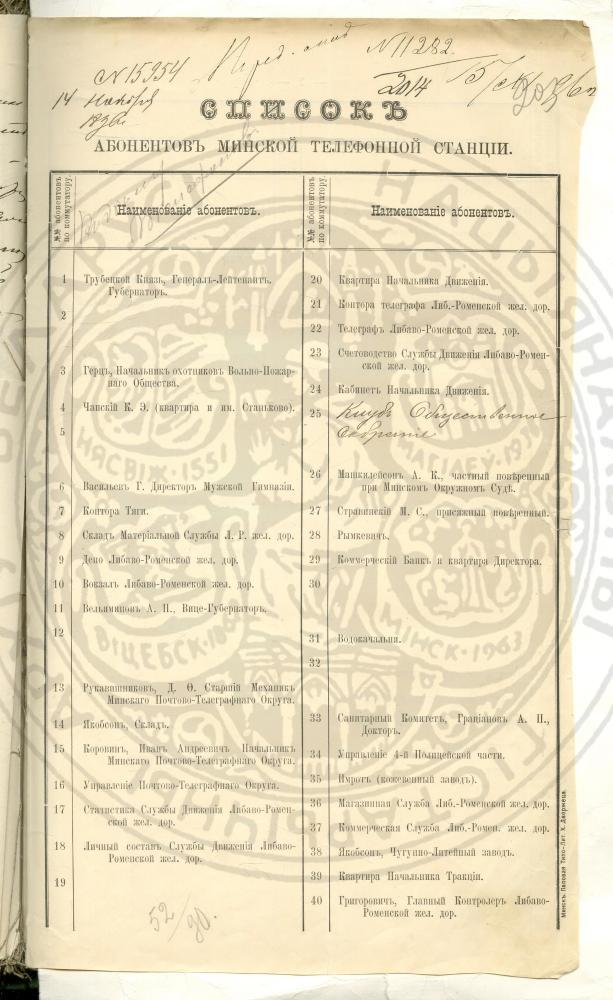 № 15954
14 Ноября
1896 г.
№ 11282.
2014
СПИСОКЪ
АБОНЕНТОВЪ МИНСКОЙ ТЕЛЕФОННОЙ СТАНЦІИ.
№№ абонентовъ по коммутатору.
Наименованіе абонентовъ.
1 Трубецкой Князь, Генералъ-Лейтенантъ.
Губернаторъ.
2
3 Герцъ, Начальникъ охотниковъ Вольно-Пожар-
наго Общества.
4 Чапскій К. Э. (квартира и им. Станьково).
5
6 Васильевъ Г. Директоръ Мужской Гимназіи.
7 Контора Тяги.
8 Складъ Матеріальной Службы Л. Р. жел. дор.
9 Депо Либаво-Роменской жел. дор.
10 Вокзалъ Либаво-Роменской жел. дор.
11 Вельяминовъ А. Н., Вице-Губернаторъ.
12
13 Рукавишниковъ, Д. Ѳ. Старшій Механикъ
Минскаго Почтово-Телеграфнаго Округа.
14 Якобсонъ, Складъ.
15 Коровинъ, Иванъ Андреевичъ Начальникъ
Минскаго Почтово-Телеграфнаго Округа.
16 Управленіе Почтово-Телеграфнаго Округа.
17 Статистика Службы Движенія Либаво-Ромен-
ской жел. дор.
18 Личный составъ Службы Движенія Либаво-
Роменской жел. дор.
19
52/90.
№№ абонентовъ по коммутатору.
Наименованіе абонентовъ.
20 Квартира Начальника Движенія.
21 Контора телеграфа Либ.-Роменской жел. дор.
22 Телеграфъ Либаво-Роменской жел. дор.
23 Счетоводство Службы Движенія Либаво-Ромен-
ской жел. дор.
24 Кабинетъ Начальника Движенія.
25 Клубъ Общественное
Собраніе
26 Машкилейсонъ А. К., частный повѣренный
при Минскомъ Окружномъ Судѣ.
27 Странинскій М. С., присяжный повѣренный.
28 Рымкевичъ.
29 Коммерческій Банкъ и квартира Директора.
30
31 Водокачальня.
32
33 Санитарный Комитетъ, Граціановъ А. П.,
Докторъ.
34 Управленіе 4-й Полицейской части.
35 Импотъ (кожевенный заводъ).
36 Магазинная Служба Либ.-Роменской жел. дор.
37 Коммерческая Служба Либ.-Ромен. жел. дор.
38 Якобсонъ, Чугунно-Литейный заводъ.
39 Квартира Начальника Тракціи.
40 Григоровичъ, Главный Контролеръ Либаво-
Роменской жел. дор.
Минскъ. Паровая Типо-Лит. Х. Дворжеца.
НЯСВІЖ·1551
ВІЦЕБСК·
МІНСК·1963